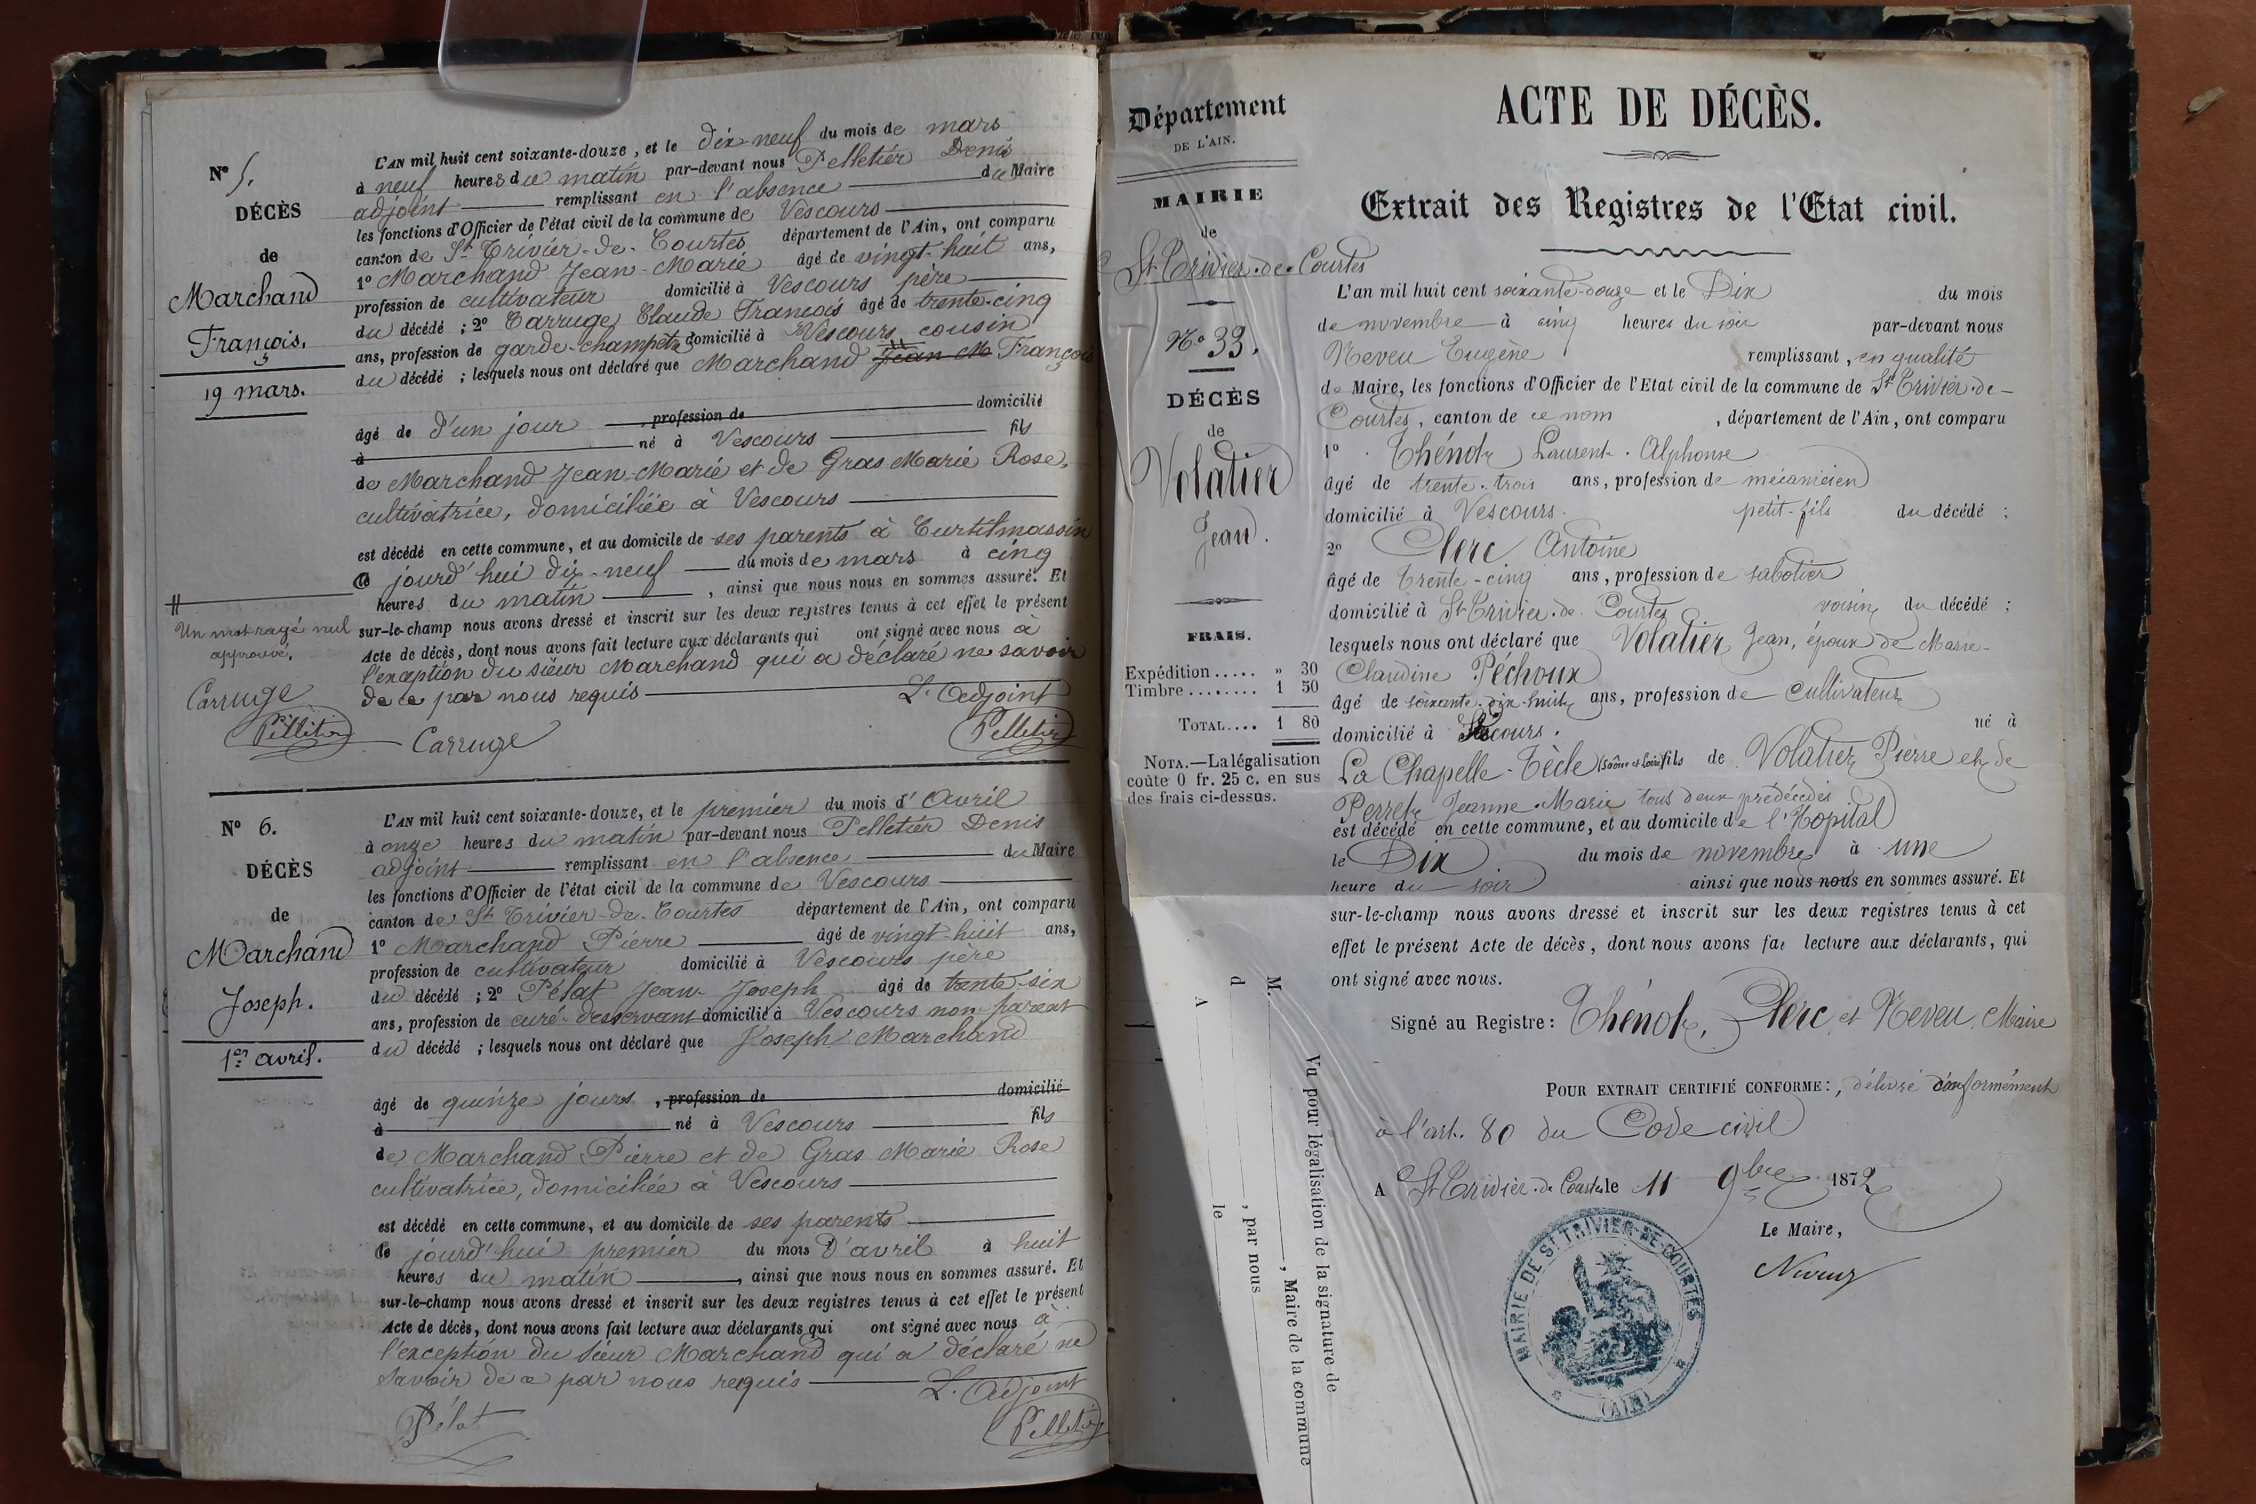 N° 5.
DÉCÈS
de
Marchand
François.
19 mars.
L'AN mil huit cent soixante-douze, et le dix neuf du mois de mars
à neuf heures du matin par-devant nous Pelletier Denis
adjoint remplissant en l'absence du Maire
les fonctions d'Officier de l'état civil de la commune de Vescours
canton de St Trivier-de-Courtes département de l'Ain, ont comparu
1° Marchand Jean-Marie âgé de vingt-huit ans,
profession de cultivateur domicilié à Vescours père
du décédé ; 2° Carruge Claude François âgé de trente-cinq
ans, profession de garde-champetre domicilié à Vescours cousin
du décédé ; lesquels nous ont déclaré que Marchand Jean M François
âgé de d'un jour , profession de domicilié
à né à Vescours fils
de Marchand Jean-Marie et de Gras Marie Rose,
cultivatrice, domiciliée à Vescours
est décédé en cette commune, et au domicile de ses parents à Curtilmassin
le jourd'hui dix-neuf du mois de mars à cinq
heures du matin , ainsi que nous nous en sommes assuré. Et
sur-le-champ nous avons dressé et inscrit sur les deux registres tenus à cet effet le présent
Acte de décès, dont nous avons fait lecture aux déclarants qui ont signé avec nous à
l'exception du sieur Marchand qui a déclaré ne savoir
de ce par nous requis L. adjoint
Un mot rayé nul
approuvé.
Carruge
Pelletier Carruge Pelletier
N° 6.
DÉCÈS
de
Marchand
Joseph.
1er avril.
L'AN mil huit cent soixante-douze, et le premier du mois d'Avril
à onze heures du matin par-devant nous Pelletier Denis
adjoint remplissant en l'absence du Maire
les fonctions d'Officier de l'état civil de la commune de Vescours
canton de St Trivier-de-Courtes département de l'Ain, ont comparu
1° Marchand Pierre âgé de vingt-huit ans,
profession de cultivateur domicilié à Vescours père
du décédé ; 2° Pélat Jean Joseph âgé de trente-six
ans, profession de curé-desservant domicilié à Vescours non parent
du décédé ; lesquels nous ont déclaré que Joseph Marchand
âgé de quinze jours , profession de domicilié
à né à Vescours fils
de Marchand Pierre et de Gras Marie Rose
cultivatrice, domiciliée à Vescours
est décédé en cette commune, et au domicile de ses parents
le jourd'hui premier du mois d'avril à huit
heures du matin , ainsi que nous nous en sommes assuré. Et
sur-le-champ nous avons dressé et inscrit sur les deux registres tenus à cet effet le présent
Acte de décès, dont nous avons fait lecture aux déclarants qui ont signé avec nous à
l'exception du sieur Marchand qui a déclaré ne
savoir de ce par nous requis L. adjoint
Pélat Pelletier
Département
DE L'AIN.
MAIRIE
de
St Trivier-de-Courtes
N° 33.
DÉCÈS
de
Volatier
Jean.
FRAIS.
Expédition..... » 30
Timbre........ 1 50
TOTAL.... 1 80
NOTA.—La légalisation
coûte 0 fr. 25 c. en sus
des frais ci-dessus.
ACTE DE DÉCÈS.
Extrait des Registres de l'Etat civil.
L'an mil huit cent soixante-douze et le Dix du mois
de novembre à cinq heures du soir par-devant nous
Neveu Eugène remplissant, en qualité
de Maire, les fonctions d'Officier de l'Etat civil de la commune de St Trivier-de-
Courtes, canton de ce nom , département de l'Ain, ont comparu
1° Thénot Laurent Alphonse
âgé de trente-trois ans, profession de mécanicien
domicilié à Vescours. petit-fils du décédé ;
2° Clerc Antoine
âgé de trente-cinq ans, profession de sabotier
domicilié à St Trivier-de-Courtes voisin du décédé ;
lesquels nous ont déclaré que Volatier Jean, époux de Marie-
Claudine Péchoux
âgé de soixante-dix-huit ans, profession de cultivateur
domicilié à Vescours. né à
La Chapelle-Tècle (Saône et Loire) fils de Volatier Pierre et de
Perret Jeanne-Marie tous deux prédécédés
est décédé en cette commune, et au domicile de l'Hopital
le Dix du mois de novembre à une
heure du soir ainsi que nous nous en sommes assuré. Et
sur-le-champ nous avons dressé et inscrit sur les deux registres tenus à cet
effet le présent Acte de décès, dont nous avons fai lecture aux déclarants, qui
ont signé avec nous.
Signé au Registre : Thénot, Clerc, et Neveu, Maire
POUR EXTRAIT CERTIFIÉ CONFORME :, délivré conformément
à l'art. 80 du Code civil
A St Trivier-de-Courtes le 11 9bre 1872
Le Maire,
Neveu
MAIRIE DE ST TRIVIER-DE-COURTES
(AIN)
Vu pour légalisation de la signature de
M. , Maire de la commune
d , par nous
A le